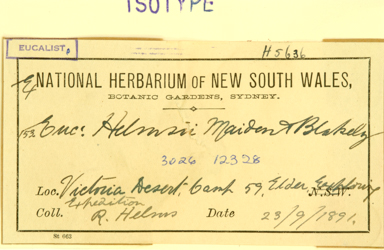 ISOTYPE
EUCALIST.
H 5636
Ex NATIONAL HERBARIUM OF NEW SOUTH WALES,
BOTANIC GARDENS, SYDNEY.
153. Euc. Helmsii Maiden & Blakely
3026 12328
Loc. Victoria Desert, Camp 59, Elder Exploring N.S.W.
Expedition
Coll. R. Helms Date 23/9/1891.